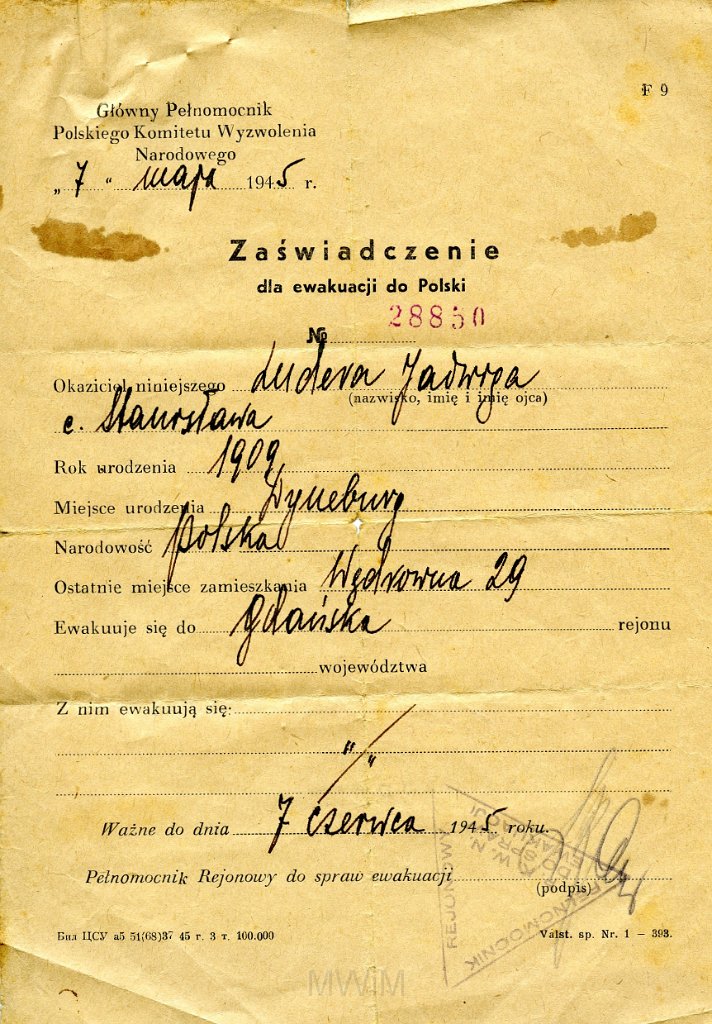 F 9
Główny Pełnomocnik
Polskiego Komitetu Wyzwolenia
Narodowego
„ 7 “ maja 1945 r.
Zaświadczenie
dla ewakuacji do Polski
28850
№
Okaziciel niniejszego Ludera Jadwiga
(nazwisko, imię i imię ojca)
c. Stanisława
Rok urodzenia 1909
Miejsce urodzenia Dyneburg
Narodowość polska
Ostatnie miejsce zamieszkania Wędrowna 29
Ewakuuje się do Gdańska rejonu
województwa
Z nim ewakuują się:
"/"
Ważne do dnia 7 czerwca 1945 roku.
Pełnomocnik Rejonowy do spraw ewakuacji
(podpis)
REJONOWY
PEŁNOMOCNIK
Бил ЦСУ а5 51(68)37 45 г. 3 т. 100.000
Valst. sp. Nr. 1 – 393.
MWiM